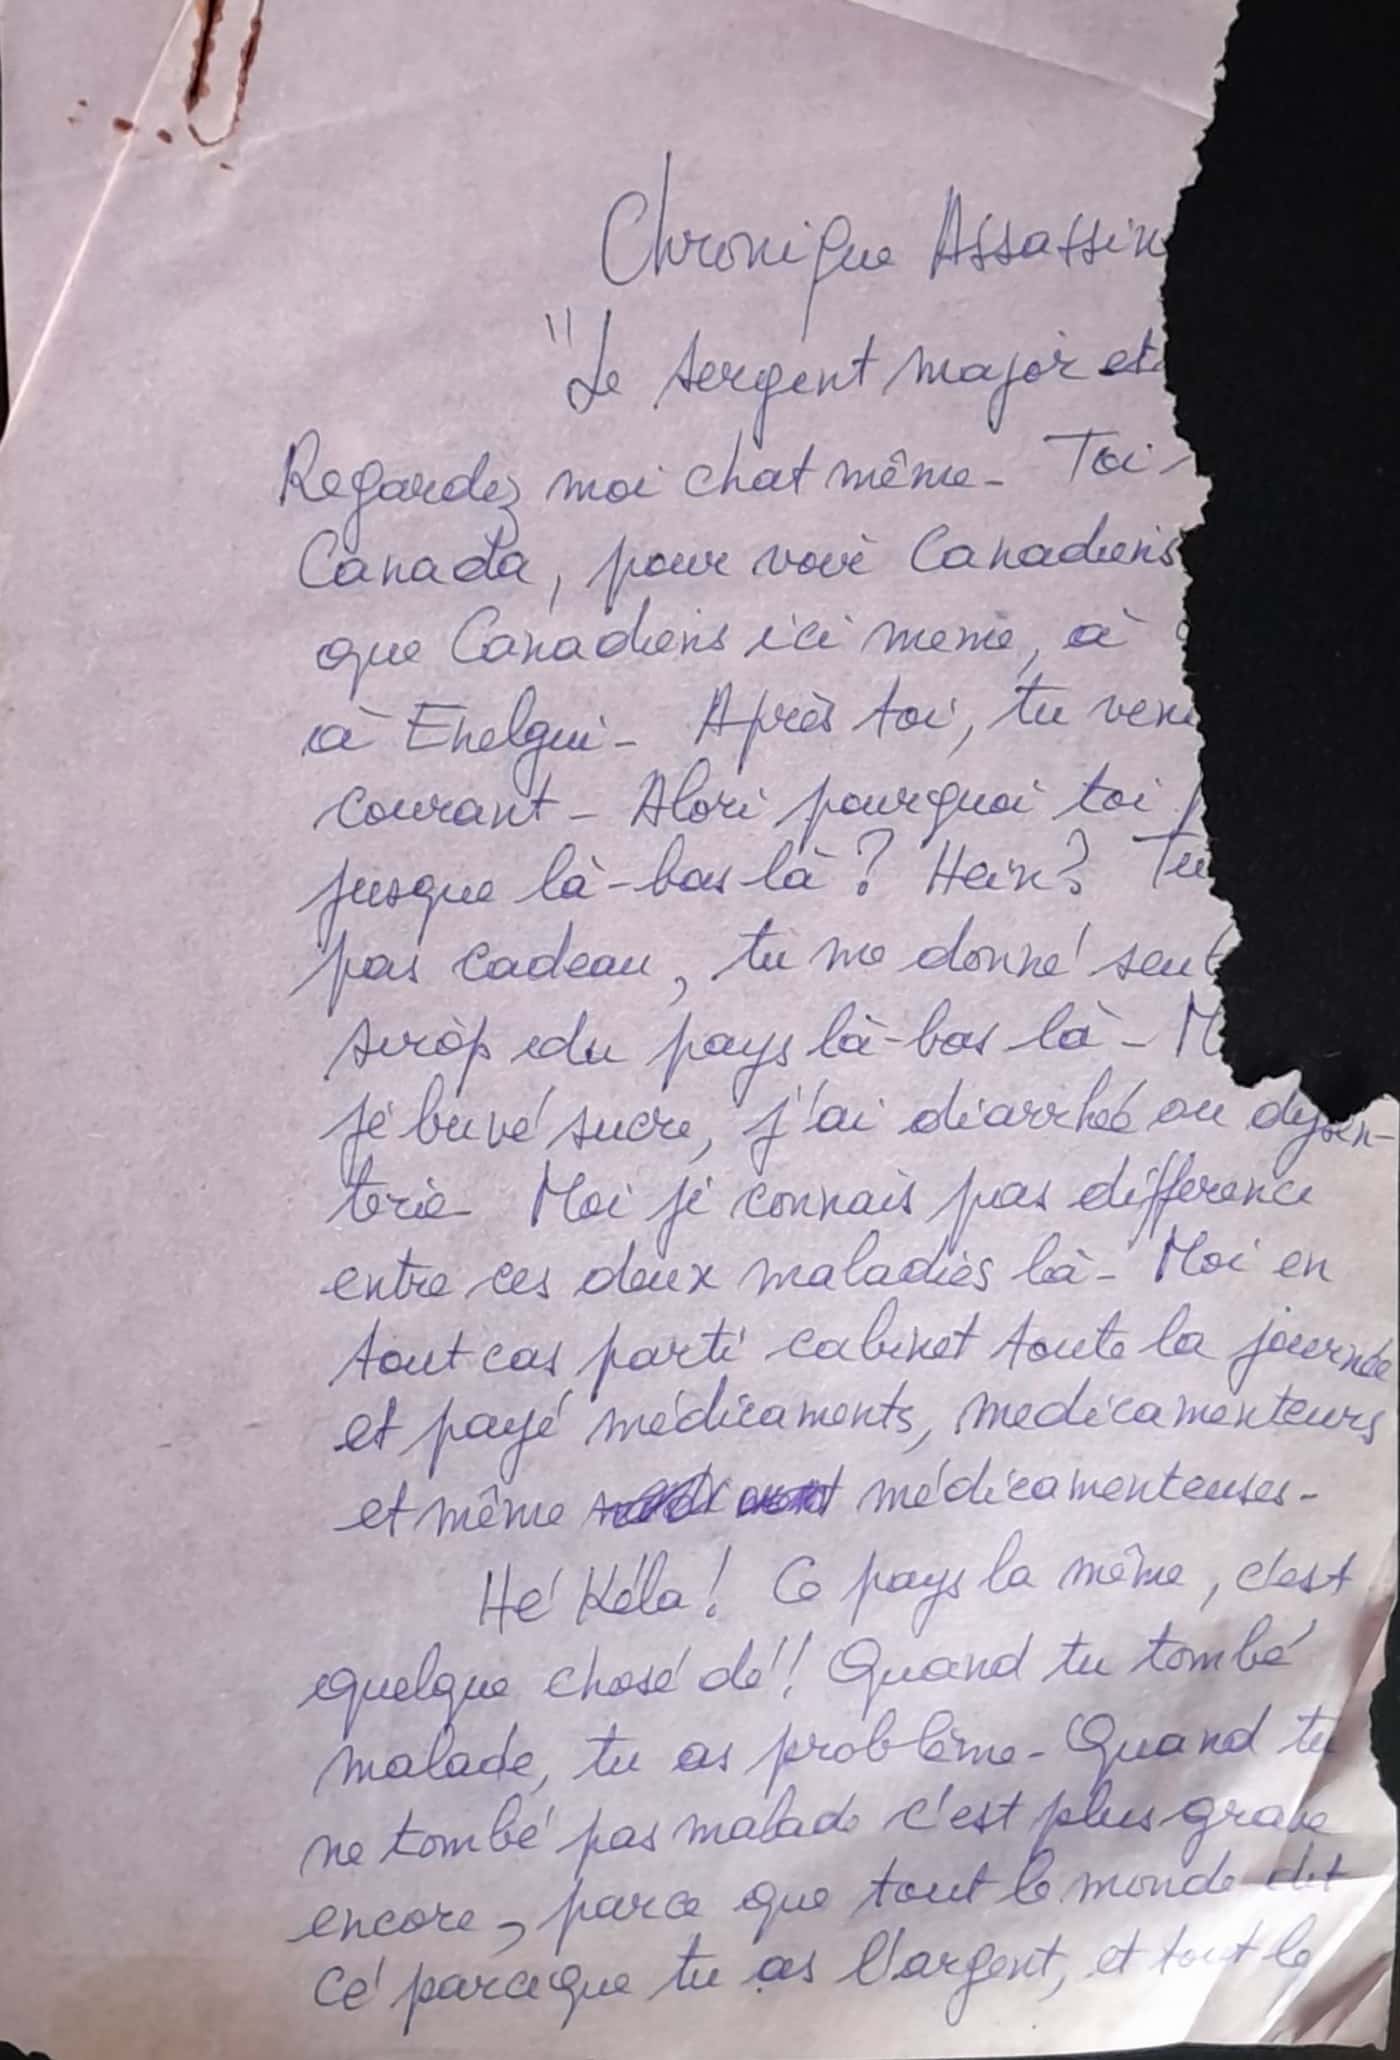 Chronique Assassin
"Le sergent major est
Regardez moi chat même - Toi
Canada, pour voir Canadiens
que Canadiens ici meme, à
à Ehelgui - Après toi, tu veni
courant - Alori pourquoi toi
jusque là-bas là ? Hein ? Tu
pas cadeau, tu me donné seul
sirôp du pays là-bas là - M
jé buvé sucre, j'ai diarrheé ou dysen-
terie Moi ji connais pas difference
entre ces deux maladies là - Moi en
tout cas parti cabinet toute la journée
et payé médicaments, medicamenteurs
et même médicamenteuses -
Hé Kéla ! Ce pays la même, c'est
quelque chosé dé !! Quand tu tombé
malade, tu as problème - Quand tu
ne tombé pas malade c'est plus grave
encore, parce que tout le monde dit
cé parceque tu as l'argent, et tout le